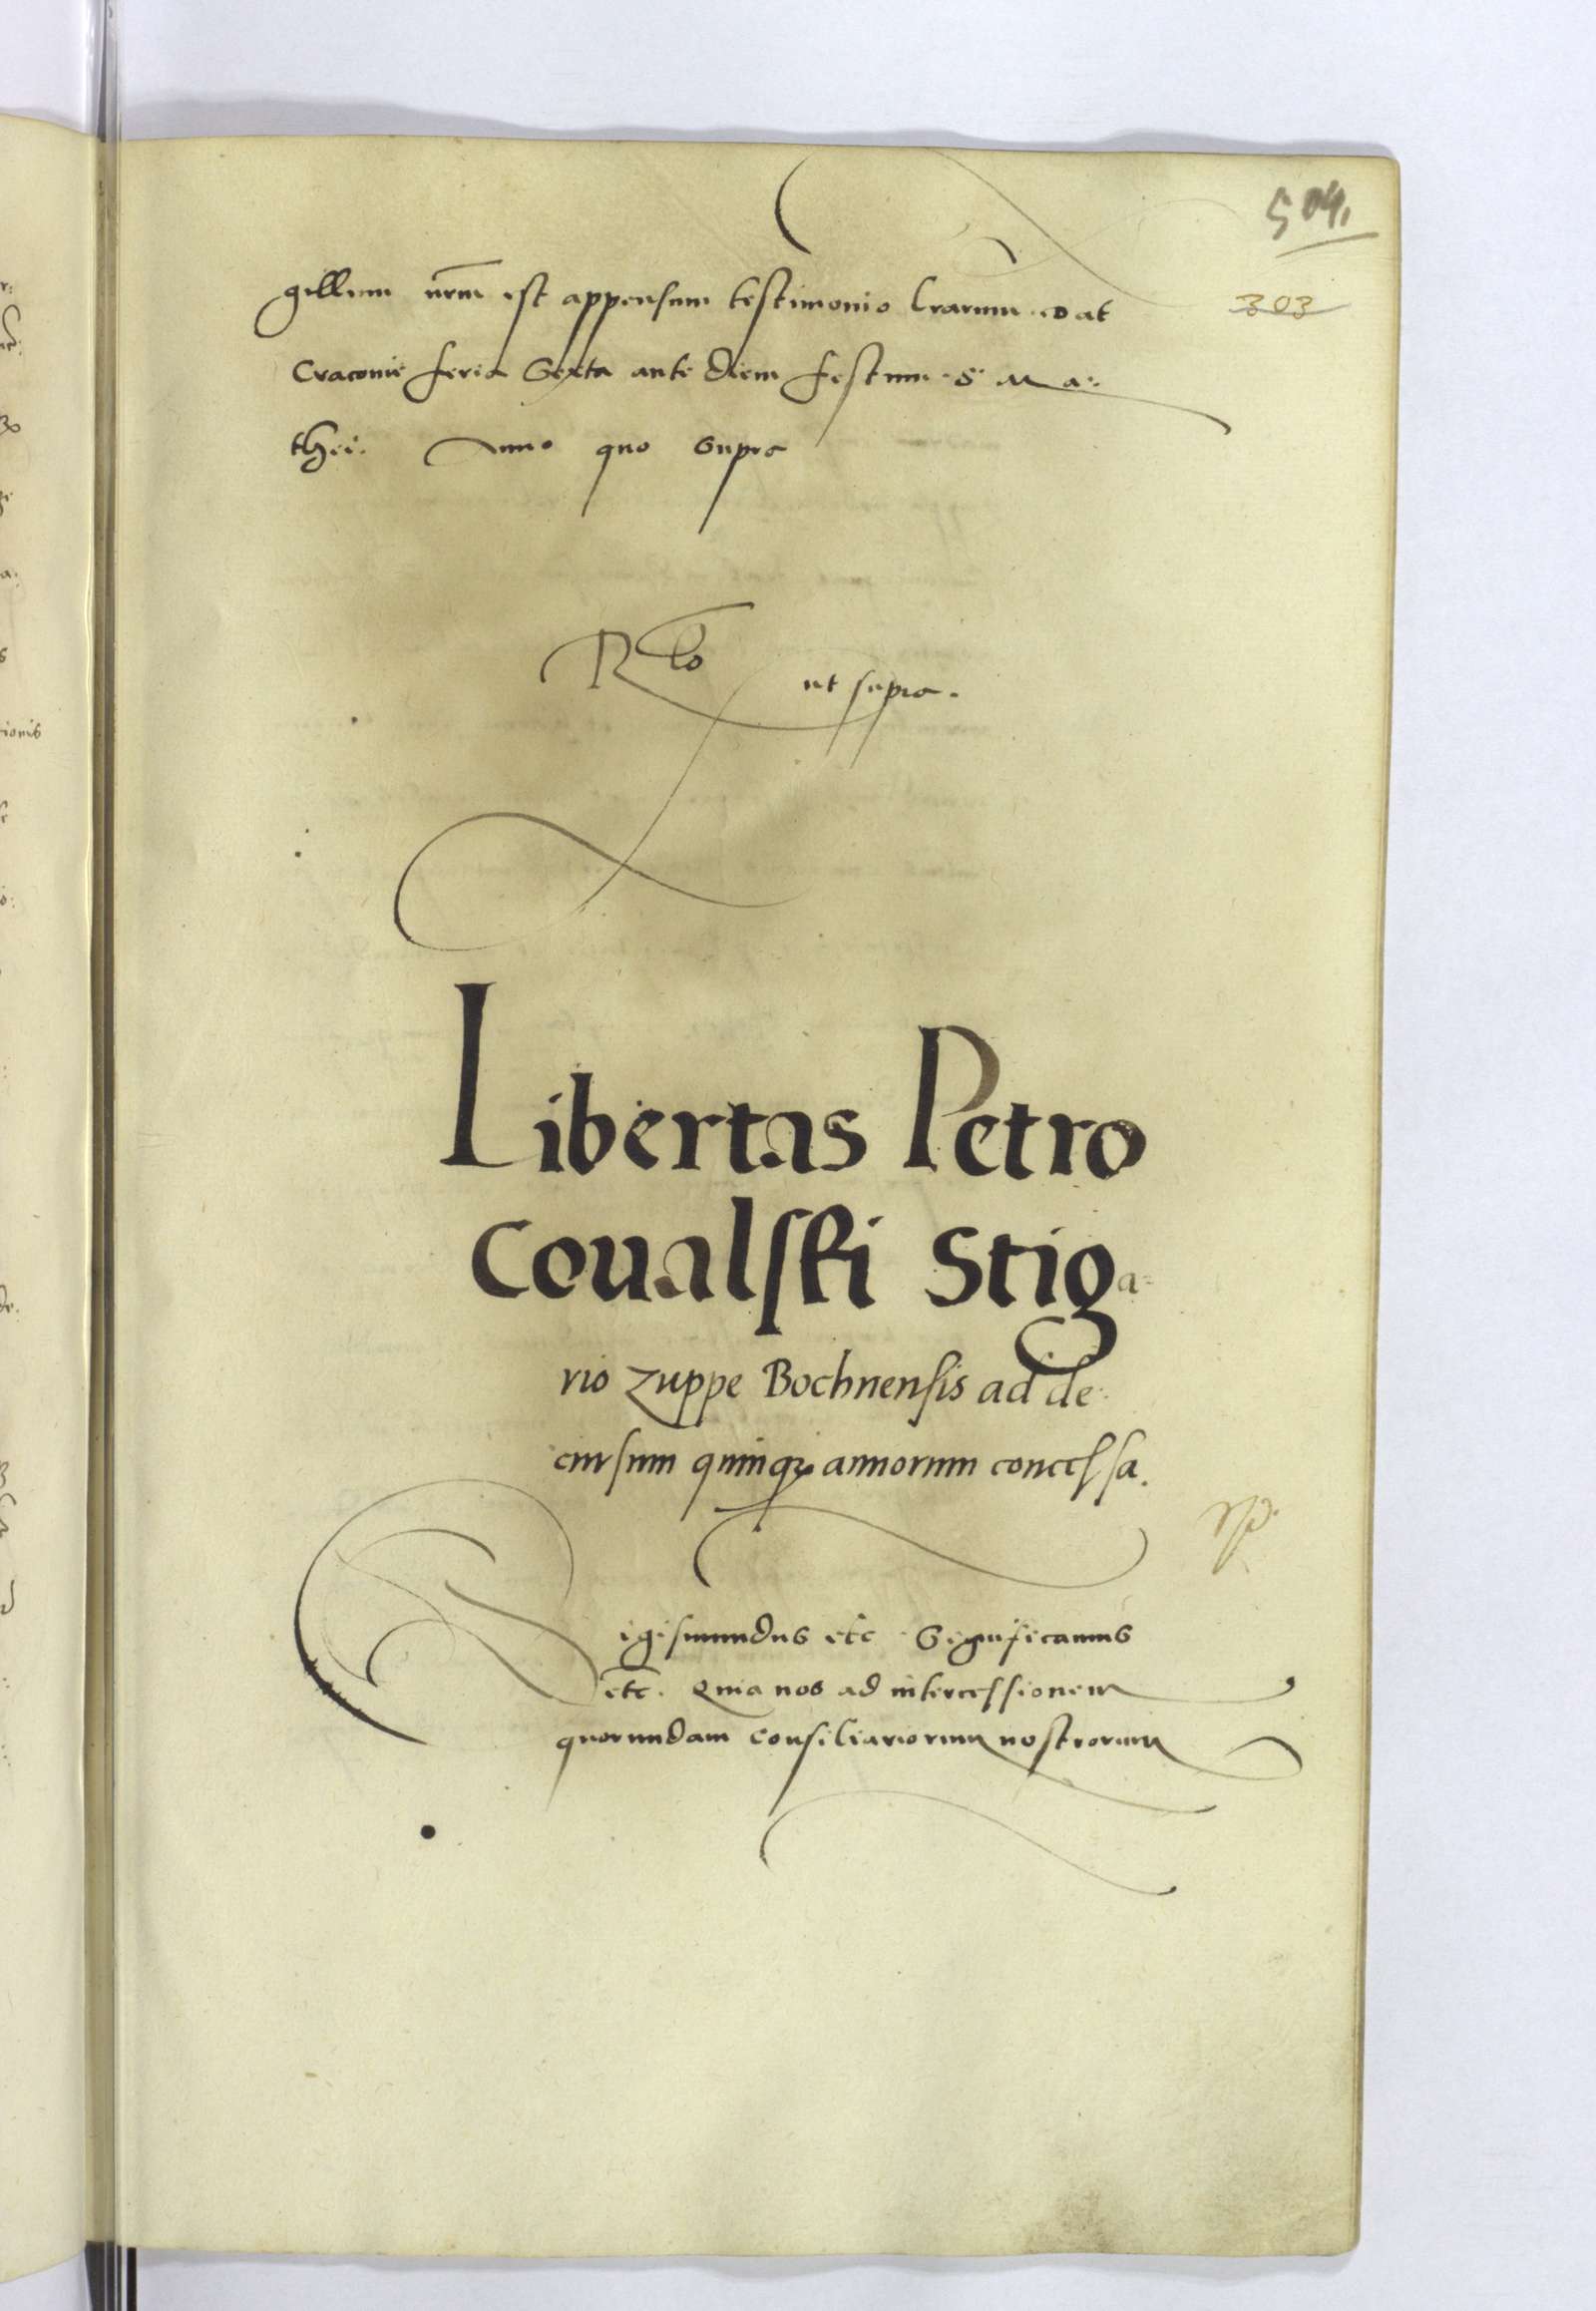 504.
303
gillum nrm est appensum testimonio lrarum Dat
Cracovie feria Sexta ante diem festum S. Ma=
thei. Anno quo supra
Rlo ut supra.
Libertas Petro
Coualski Stiga=
rio zuppe Bochnensis ad de=
cursum quinqꝫ annorum concessa.
Sigismundus etc Significamus
etc. Quia nos ad intercessionem
quorundam consiliariorum nostrorum